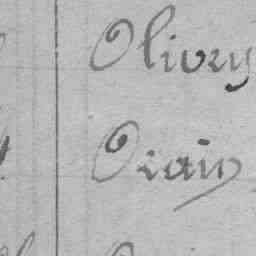 Olivry
Orain